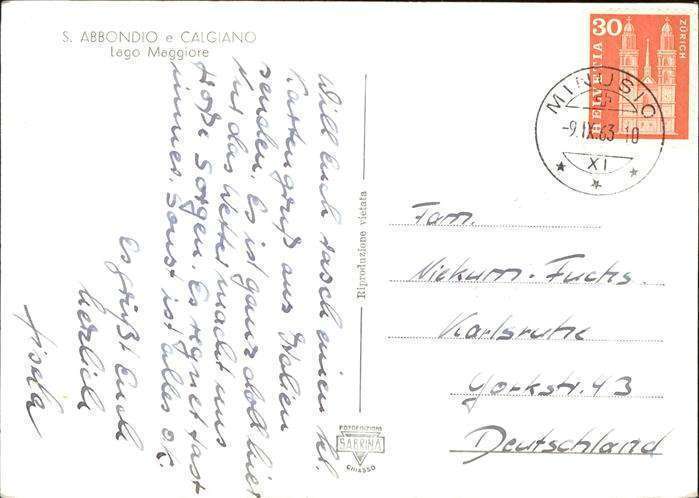 S. ABBONDIO e CALGIANO
Lago Maggiore
Will Euch rasch einen kl.
Kartengruß aus Italien
senden. Es ist ganz doll hier
Nur das Wetter macht uns
große Sorgen. Es regnet fast
immer. Sonst ist alles o.k.
Es grüßt Euch
herzlich
Riproduzione vietata
FOTOEDIZIONI
SABRINA
CHIASSO
30
HELVETIA
ZÜRICH
MINUSIO
-9.IX.63. 10
XI
Fam.
Niekum-Fuchs
Karlsruhe
Yorkstr. 43
Deutschland